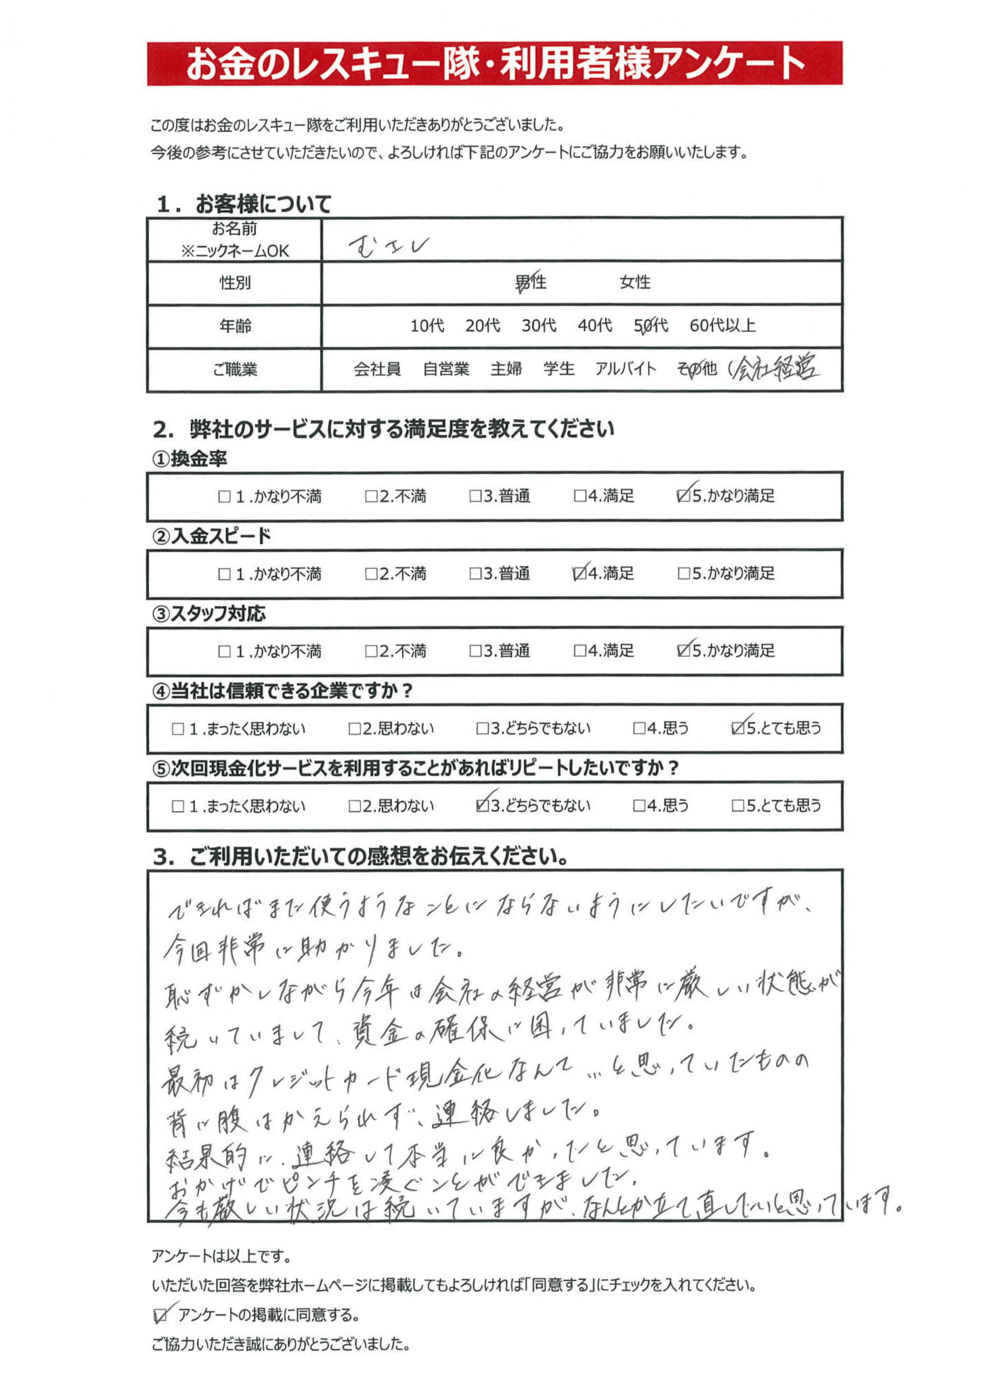 お金のレスキュー隊・利用者様アンケート
この度はお金のレスキュー隊をご利用いただきありがとうございました。
今後の参考にさせていただきたいので、よろしければ下記のアンケートにご協力をお願いいたします。
1．お客様について
お名前
※ニックネームOK
むサシ
性別 男性 女性
年齢 10代 20代 30代 40代 50代 60代以上
ご職業 会社員 自営業 主婦 学生 アルバイト その他 (会社経営
2．弊社のサービスに対する満足度を教えてください
①換金率
□1.かなり不満 □2.不満 □3.普通 □4.満足 ☑5.かなり満足
②入金スピード
□1.かなり不満 □2.不満 □3.普通 ☑4.満足 □5.かなり満足
③スタッフ対応
□1.かなり不満 □2.不満 □3.普通 □4.満足 ☑5.かなり満足
④当社は信頼できる企業ですか？
□1.まったく思わない □2.思わない □3.どちらでもない □4.思う ☑5.とても思う
⑤次回現金化サービスを利用することがあればリピートしたいですか？
□1.まったく思わない □2.思わない ☑3.どちらでもない □4.思う □5.とても思う
3．ご利用いただいての感想をお伝えください。
できればまた使うようなことにならないようにしたいですが、
今回非常に助かりました。
恥ずかしながら今年は会社の経営が非常に厳しい状態が
続いていまして、資金の確保に困っていました。
最初はクレジットカード現金化なんて…と思っていたものの
背に腹はかえられず、連絡しました。
結果的に、連絡して本当に良かったと思っています。
おかげでピンチを凌ぐことができました。
今も厳しい状況は続いていますが、なんとか立て直したいと思っています。
アンケートは以上です。
いただいた回答を弊社ホームページに掲載してもよろしければ「同意する」にチェックを入れてください。
☑ アンケートの掲載に同意する。
ご協力いただき誠にありがとうございました。